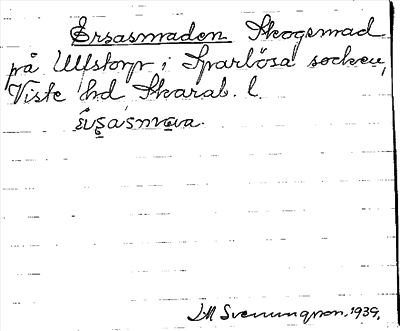 Ersasmaden Skogsmad
på Ulfstorp i Sparlösa socken,
Viste hd Skarab. l.
J M Svenungsson. 1939,